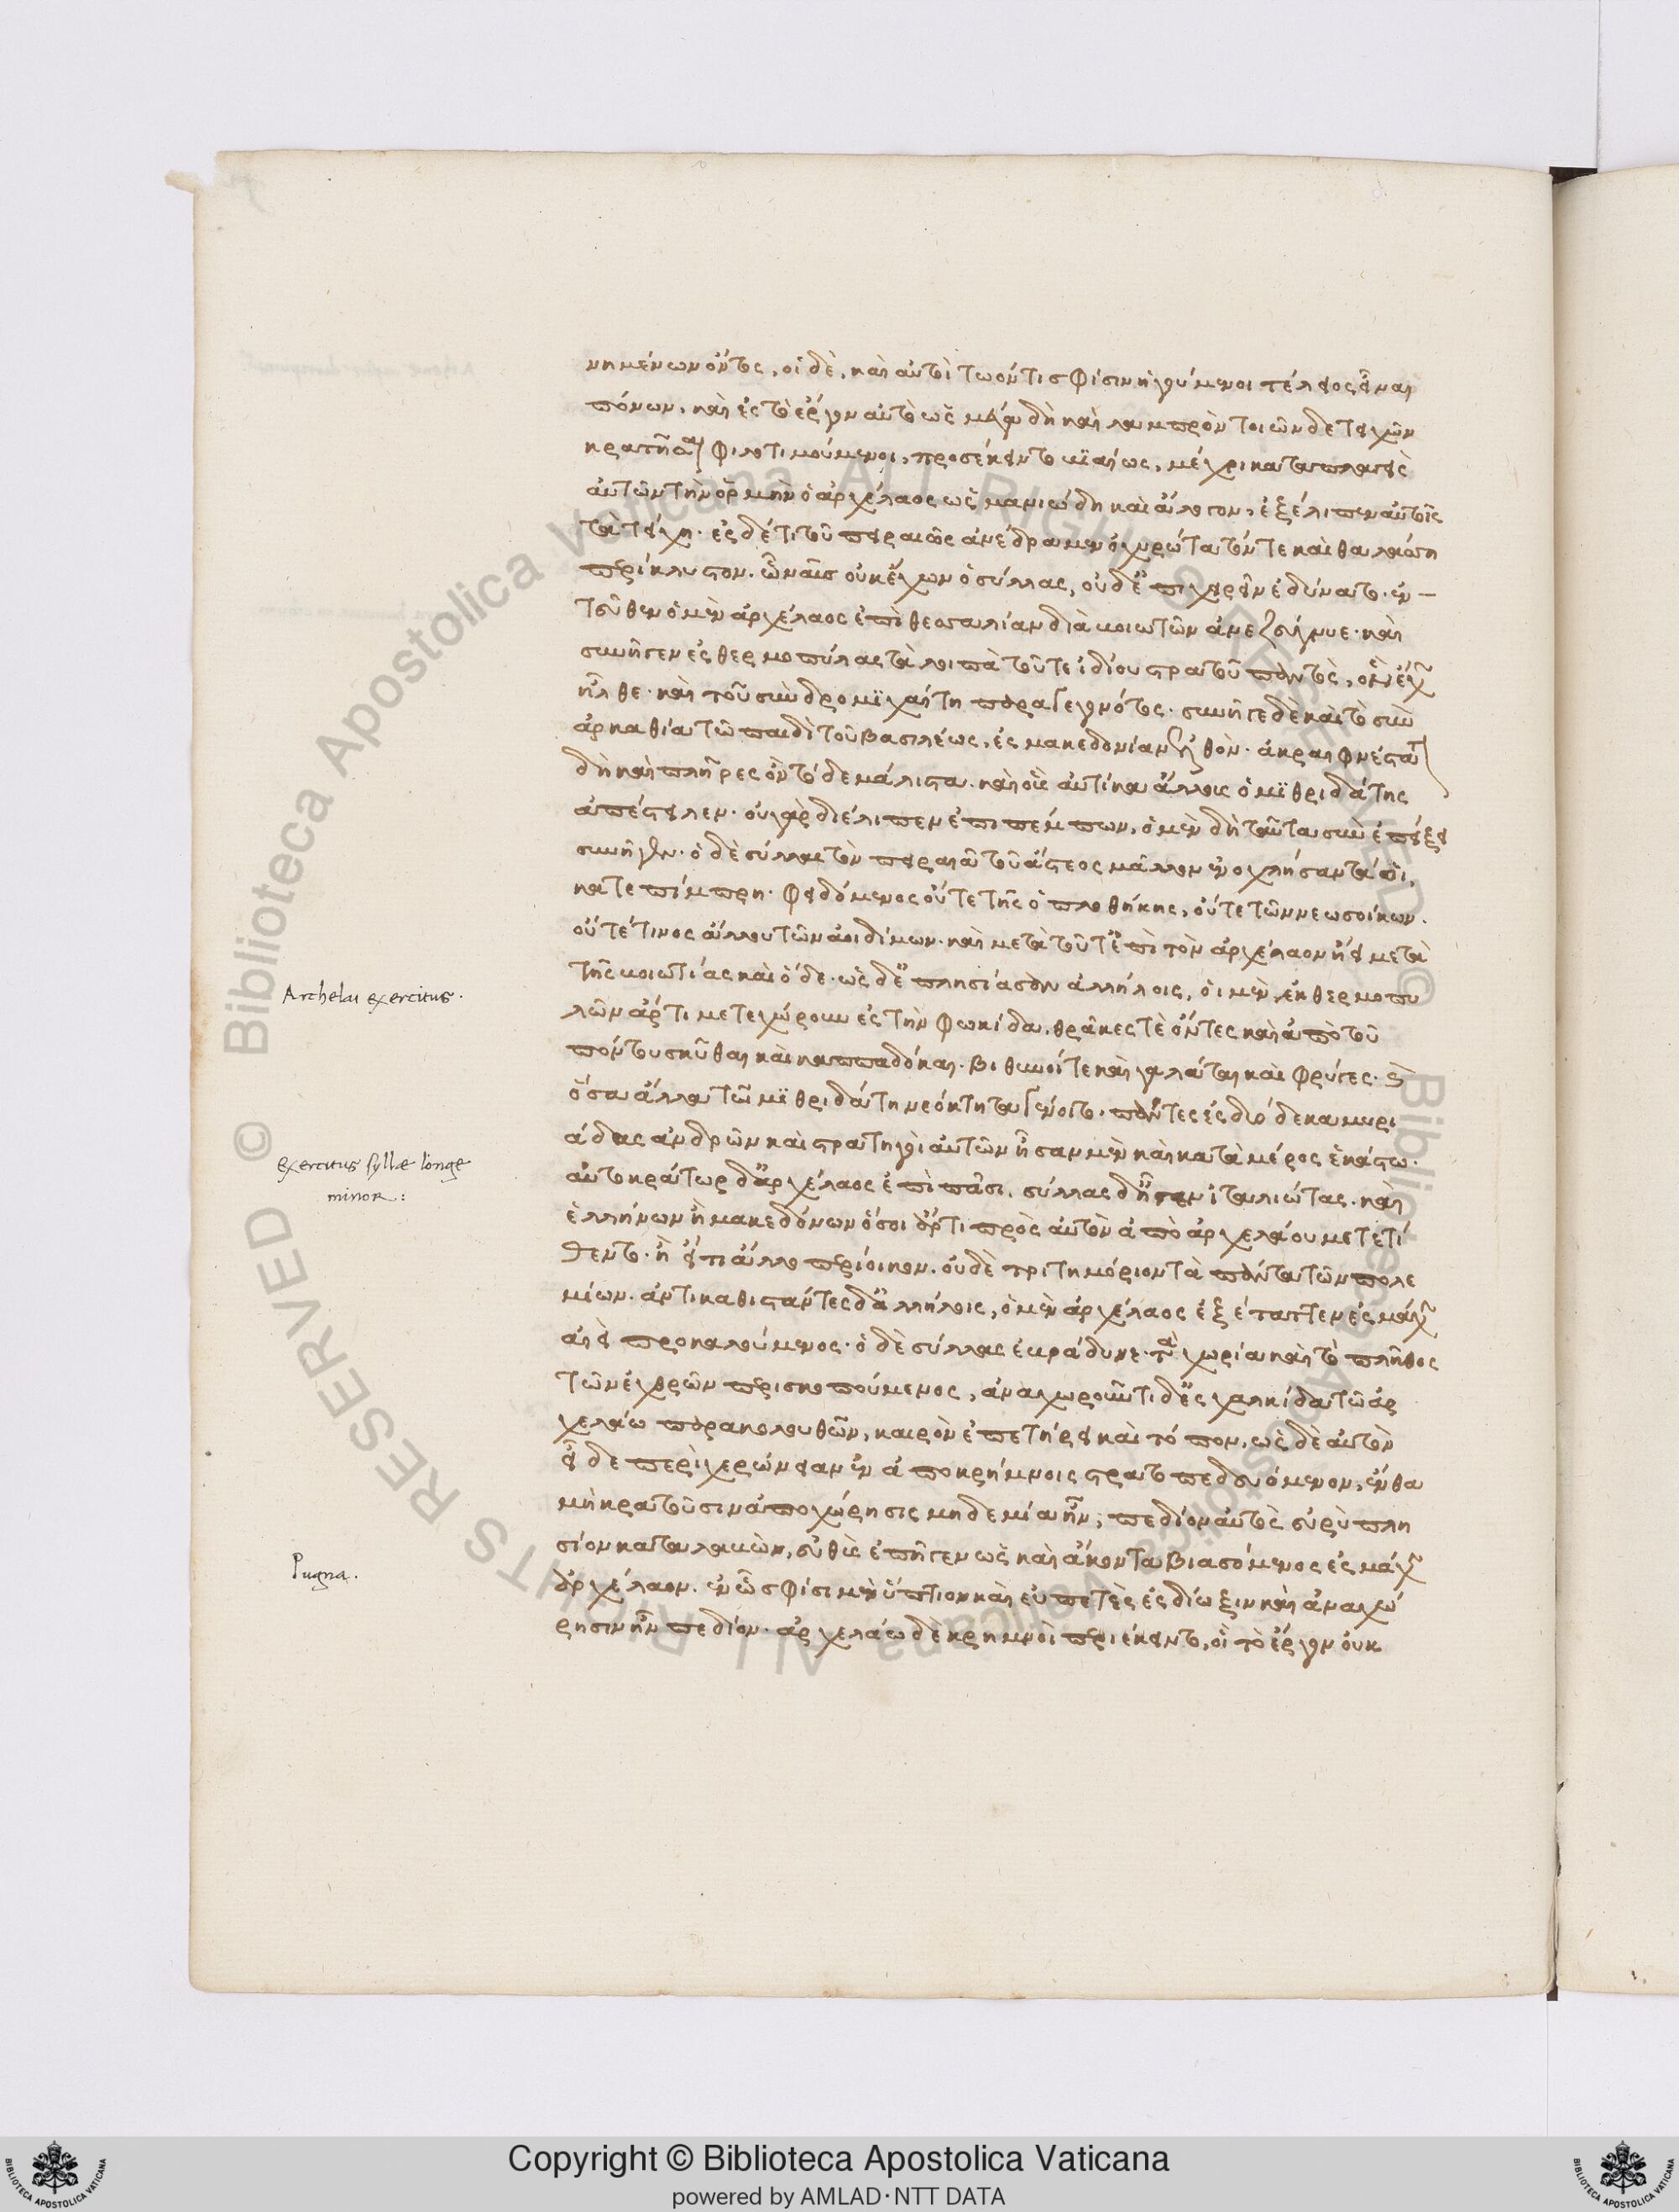 νημένων ὄντος, οἱ δὲ, καὶ αὐτὸ τῷ ὄντι σφίσιν ἡγούμενοι τέλεος εἶναι
πόνων, καὶ ἐς τὸ ἔργον αὐτὸ ὡς μέγα δὴ καὶ λαμπρὸν τοιῶνδε τειχῶν
κρατῆσαι φιλοτιμούμενοι, προσέκειντο βιαίως, μέχρι καταπλαγεὶς
αὐτῶν τὴν ὁρμὴν ὁ ἀρχέλαος ὡς μανιώδη καὶ ἄλογον, ἐξέλιπεν αὐτοῖς
τὰ τείχη. ἐς δέ τι τοῦ πειραιῶς ἀνέδραμεν ὀχυρώτατόν τε καὶ θαλάσση
περίκλυστον. ὧ ναῦς οὐκ ἔχων ὁ σύλλας, οὐδ' ἐπιχειρεῖν ἐδύνατο. ἐν-
τεῦθεν ὁ μὲν ἀρχέλαος ἐπὶ θεσσαλίαν διὰ βοιωτῶν ἀνεζεύγνυε. καὶ
συνῆγεν ἐς θερμοπύλας τὰ λοιπὰ τοῦ τε ἰδίου στρατοῦ παντὸς, ὃν ἔχων
ἦλθε. καὶ τοῦ σὺν δρομιχαίτη παραγεγονότος. συνῆγε δὲ καὶ τὸ σὺν
ἀρκαθία τῶ παιδὶ τοῦ βασιλέως, ἐς μακεδονίαν ἐλθὸν. ἀκραιφνέστατον
δὴ καὶ πλῆρες ὂν τόδε μάλιστα. καὶ οὓς αὐτίκα ἄλλους ὁ μιθριδάτης
ἀπέστειλεν. οὐ γὰρ διέλιπεν ἐπιπέμπων, ὁ μὲν δὴ ταῦτα σὺν ἐπείξει
συνῆγεν. ὁ δὲ σύλλας τὸν πειραιᾶ τοῦ ἄστεος μᾶλλον ἐνοχλήσαντά οἱ,
κατεπίμπρη. φειδόμενος οὔτε τῆς ὁπλοθήκης, οὔτε τῶν νεωσοίκων.
οὔτέ τινος ἄλλου τῶν ἀοιδίμων. καὶ μετὰ τοῦτ' ἐπὶ τὸν ἀρχέλαον ἤει μετὰ
τῆς βοιωτίας καὶ ὅδε. ὡς δὲ ἐπλησίασαν ἀλλήλοις, οἱ μὲν, ἐκ θερμοπυ
λῶν ἄρτι μετεχώρουν ἐς τὴν φωκίδα, θρᾶκές τὲ ὄντες καὶ ἀπὸ τοῦ
πόντου σκῦθαι καὶ καππαδόκαι. βιθυνοί τε καὶ γαλάται καὶ φρύγες. καὶ
ὅσα ἄλλα τῶ μιθριδάτη νεόκτητα γένοιτο. πάντες ἐς δυόδεκα μυρι
άδας ἀνδρῶν καὶ στρατηγοὶ αὐτῶν ἦσαν μὲν καὶ κατὰ μέρος ἑκάστω.
αὐτοκράτωρ δ' ἀρχέλαος ἐπὶ πᾶσι. σύλλας δ' ἦγεν ἰταλιώτας. καὶ
ἑλλήνων ἢ μακεδόνων ὅσοι ἄρτι πρὸς αὐτὸν ἀπὸ ἀρχελάου μετετί
θεντο. ἢ εἴ τι ἄλλο περίοικον. οὐδὲ τριτημόριον τὰ πάντα τῶν πολε
μίων. ἀντικαθιστάντες δ' ἀλλήλοις, ὁ μὲν ἀρχέλαος ἐξέταττεν ἐς μάχην
αἰεὶ προκαλούμενος. ὁ δὲ σύλλας ἐβράδυνε. τὰ χωρία καὶ τὸ πλῆθος
τῶν ἐχθρῶν περισκοπούμενος, ἀναχωροῦντι δ' ἐς χαλκίδα τῶ ἀρ
χελάω παρακολουθῶν, καιρὸν ἐπετήρει καὶ τόπον, ὡς δὲ αὐτὸν
εἶδε περὶ χερώνειαν ἐν ἀποκρήμνοις στρατοπεδευόμενον, ἔνθα
μὴ κρατοῦσιν ἀποχώρησις μηδεμία ἦν, πεδίον αὐτὸς εὐρὺ πλη
σίον καταλαβὼν, εὐθὺς ἐπῆγεν ὡς καὶ ἄκοντα βιασόμενος ἐς μάχην
ἀρχέλαον. ἐν ὧ σφίσι μὲν ὕπτιον καὶ εὐπετὲς ἐς δίωξιν καὶ ἀναχώ
ρησιν ἦν πεδίον. ἀρχελάω δὲ κρημνοὶ περιέκειντο, οἳ τὸ ἔργον οὐκ
Archelai exercitus.
exercitus syllæ longe
minor:
Pugna.
Copyright © Biblioteca Apostolica Vaticana
powered by AMLAD·NTT DATA